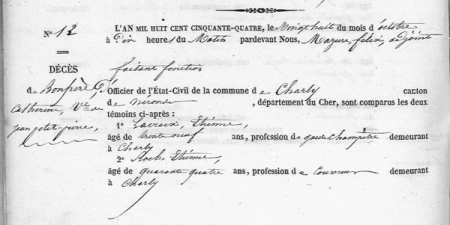 N.° 12
L'AN MIL HUIT CENT CINQUANTE-QUATRE, le Vingt huit du mois d'octobre
à Dix heure du Matin pardevant Nous, Mazure felix, adjoint
DÉCÈS
faisant fonction
de Bonpère
Officier de l'État-Civil de la commune de Charly canton
Catherine, Ve de
de nerondes, département du Cher, sont comparus les deux
jean petit pierre,
témoins ci-après :
1° Lacroix, Etienne,
âgé de trente neuf ans, profession de garde champêtre demeurant
à Charly
2° Etienne,
âgé de quarante quatre ans, profession de Couvreur demeurant
à Charly